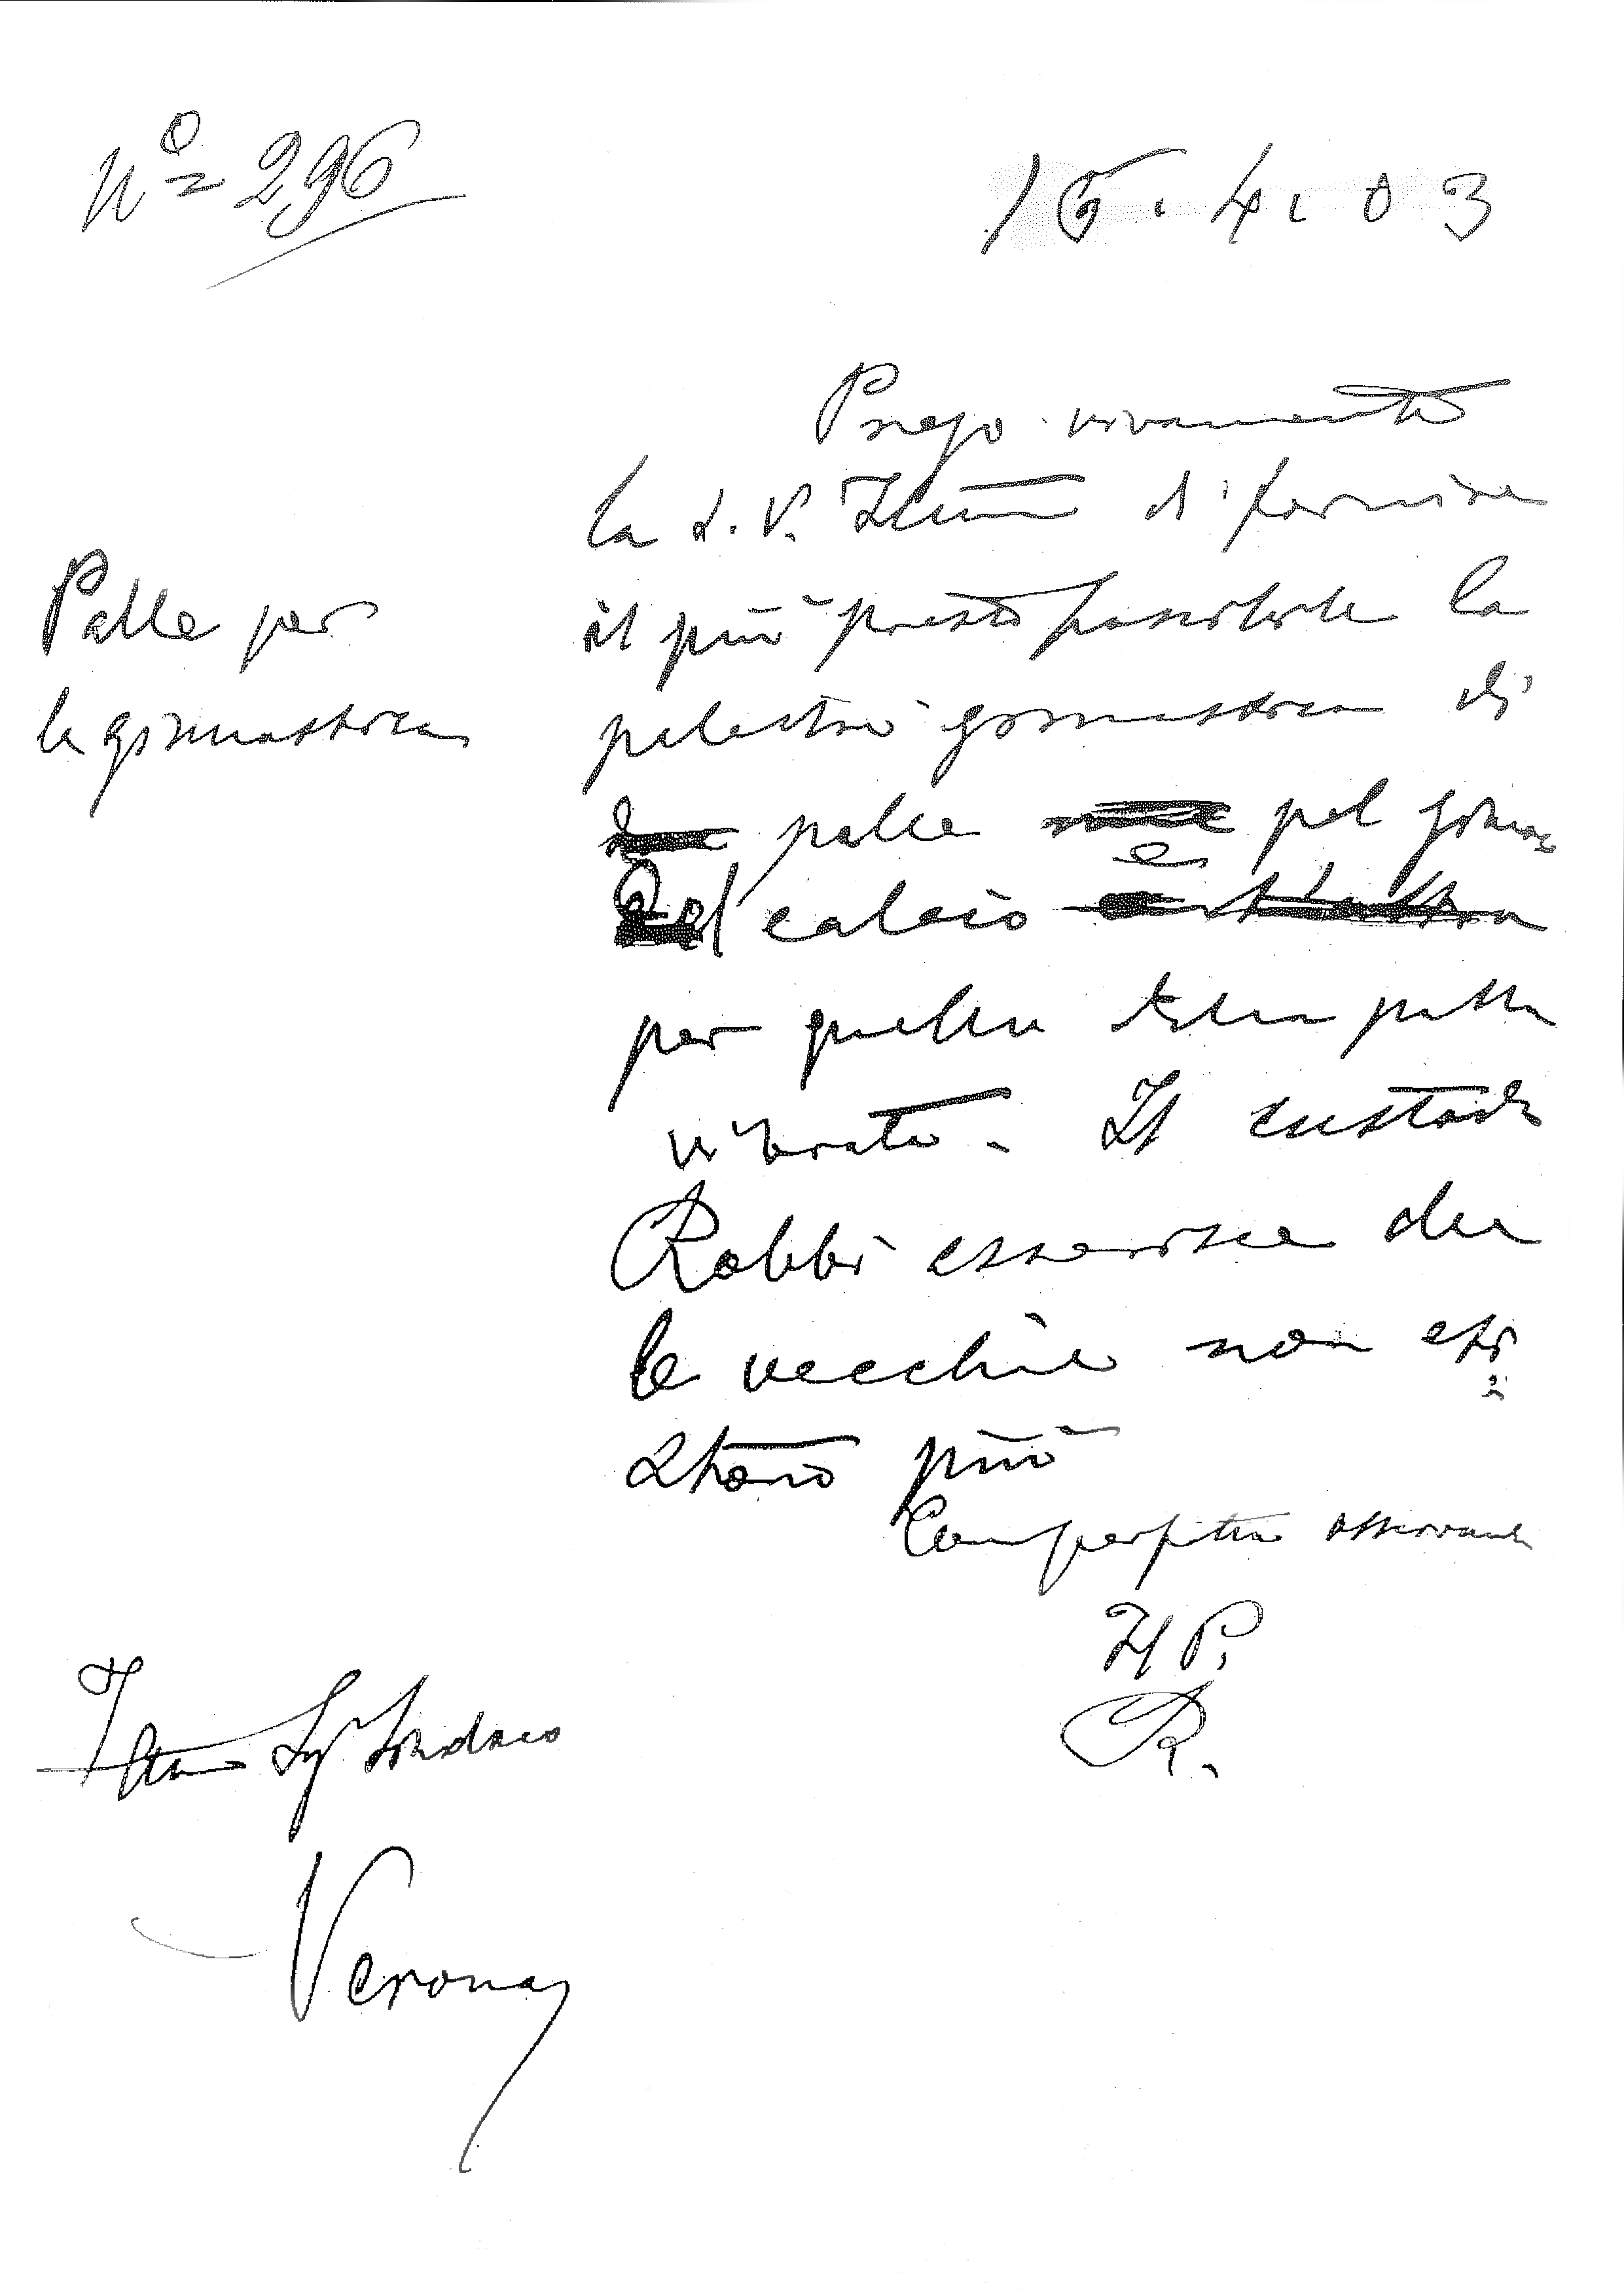 N.o 296
15.4.03
Palle per
la ginnastica
Prego vivamente
la S. V. Ill.ma di fornire
il più presto possibile la
palestra ginnastica di
palle pel giuoco
del calcio e
per quello della palla
vibrata. Il custode
Robbi asserisce che
le vecchie non esi
stono più
Con perfetta osservanza
Il P.
R.
Ill.mo Sig. Sindaco
Verona